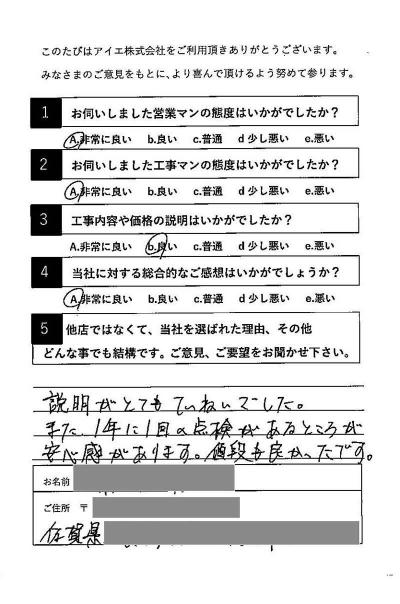 このたびはアイエ株式会社をご利用頂きありがとうございます。
みなさまのご意見をもとに、より喜んで頂けるよう努めて参ります。
1 お伺いしました営業マンの態度はいかがでしたか？
A.非常に良い b.良い c.普通 d 少し悪い e.悪い
2 お伺いしました工事マンの態度はいかがでしたか？
A.非常に良い b.良い c.普通 d 少し悪い e.悪い
3 工事内容や価格の説明はいかがでしたか？
A.非常に良い b.良い c.普通 d 少し悪い e.悪い
4 当社に対する総合的なご感想はいかがでしょうか？
A.非常に良い b.良い c.普通 d 少し悪い e.悪い
5 他店ではなくて、当社を選ばれた理由、その他
どんな事でも結構です。ご意見、ご要望をお聞かせ下さい。
説明がとてもていねいでした。
また、1年に1回の点検があるところが
安心感があります。値段も良かったです。
お名前
ご住所 〒
佐賀県